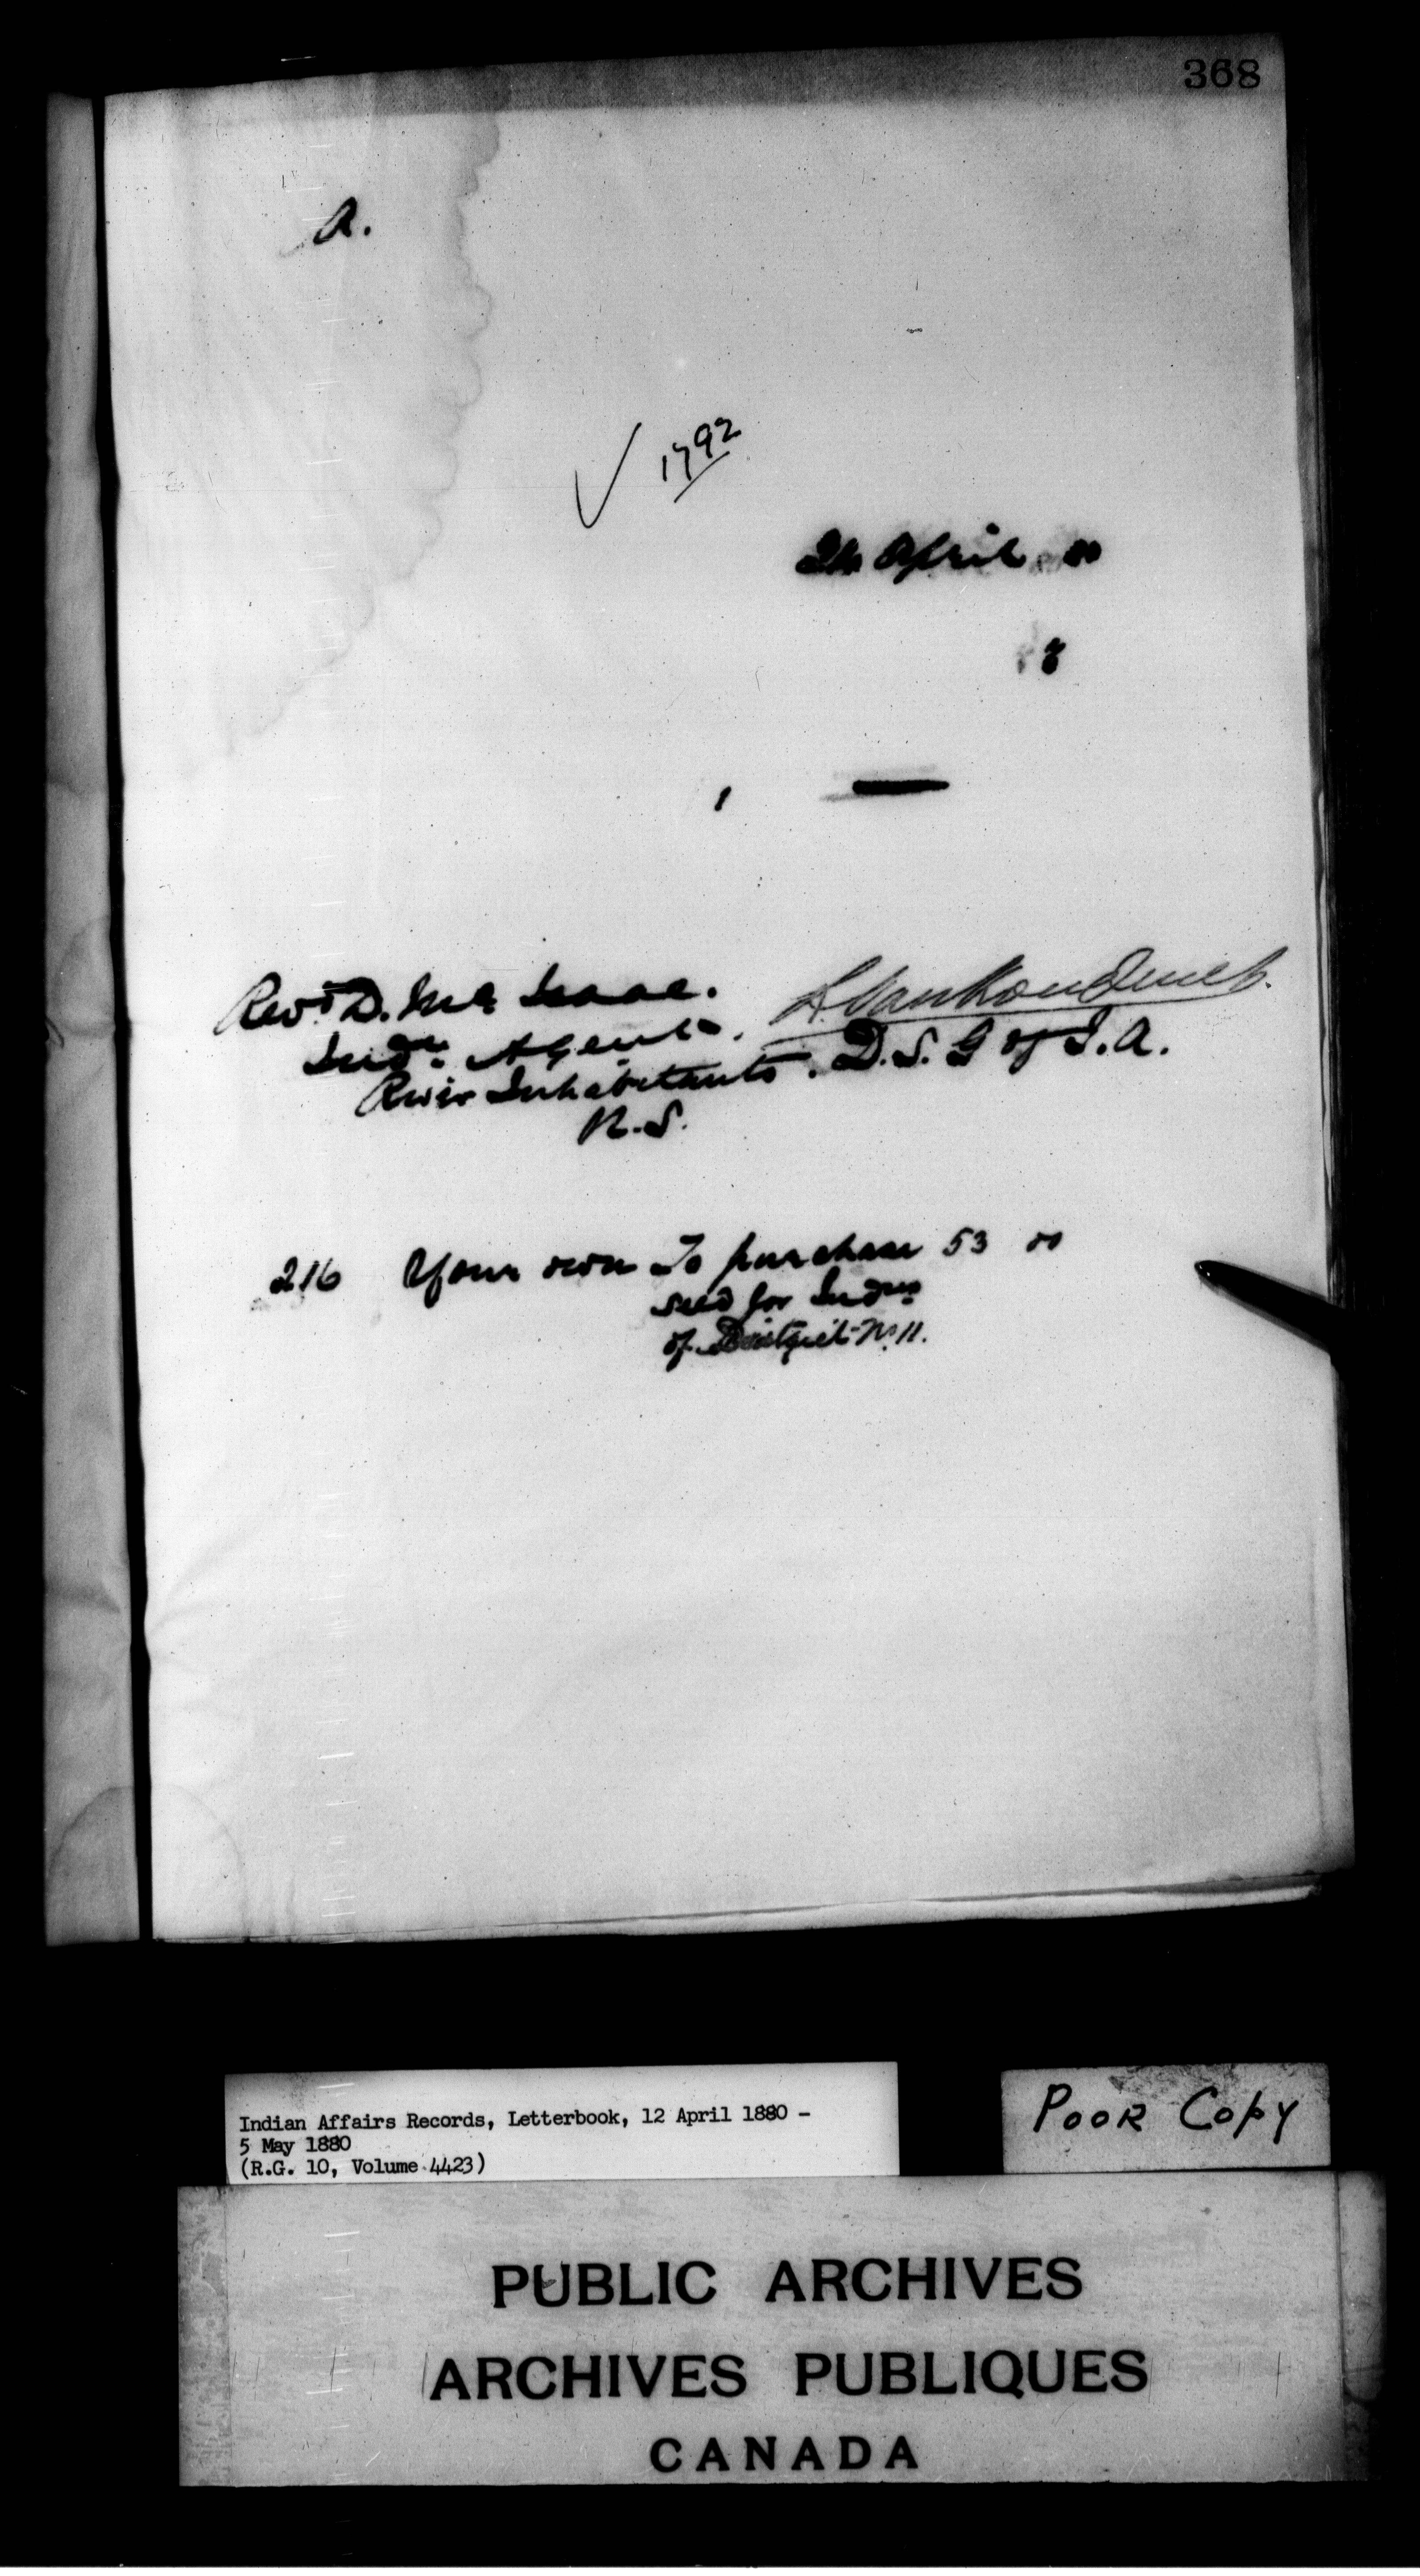 368
A.
✓ 1792
April 80
8
1 —
Revd. D. McIsaac.
Indn. Agent.
River Inhabitants.
N.S.
L. Vankoughnet.
D.S.G of I.A.
216 Your own To purchase 53 00
seed for Indns
of District No. 11.
Indian Affairs Records, Letterbook, 12 April 1880 -
5 May 1880
(R.G. 10, Volume 4423)
POOR COPY
PUBLIC ARCHIVES
ARCHIVES PUBLIQUES
CANADA